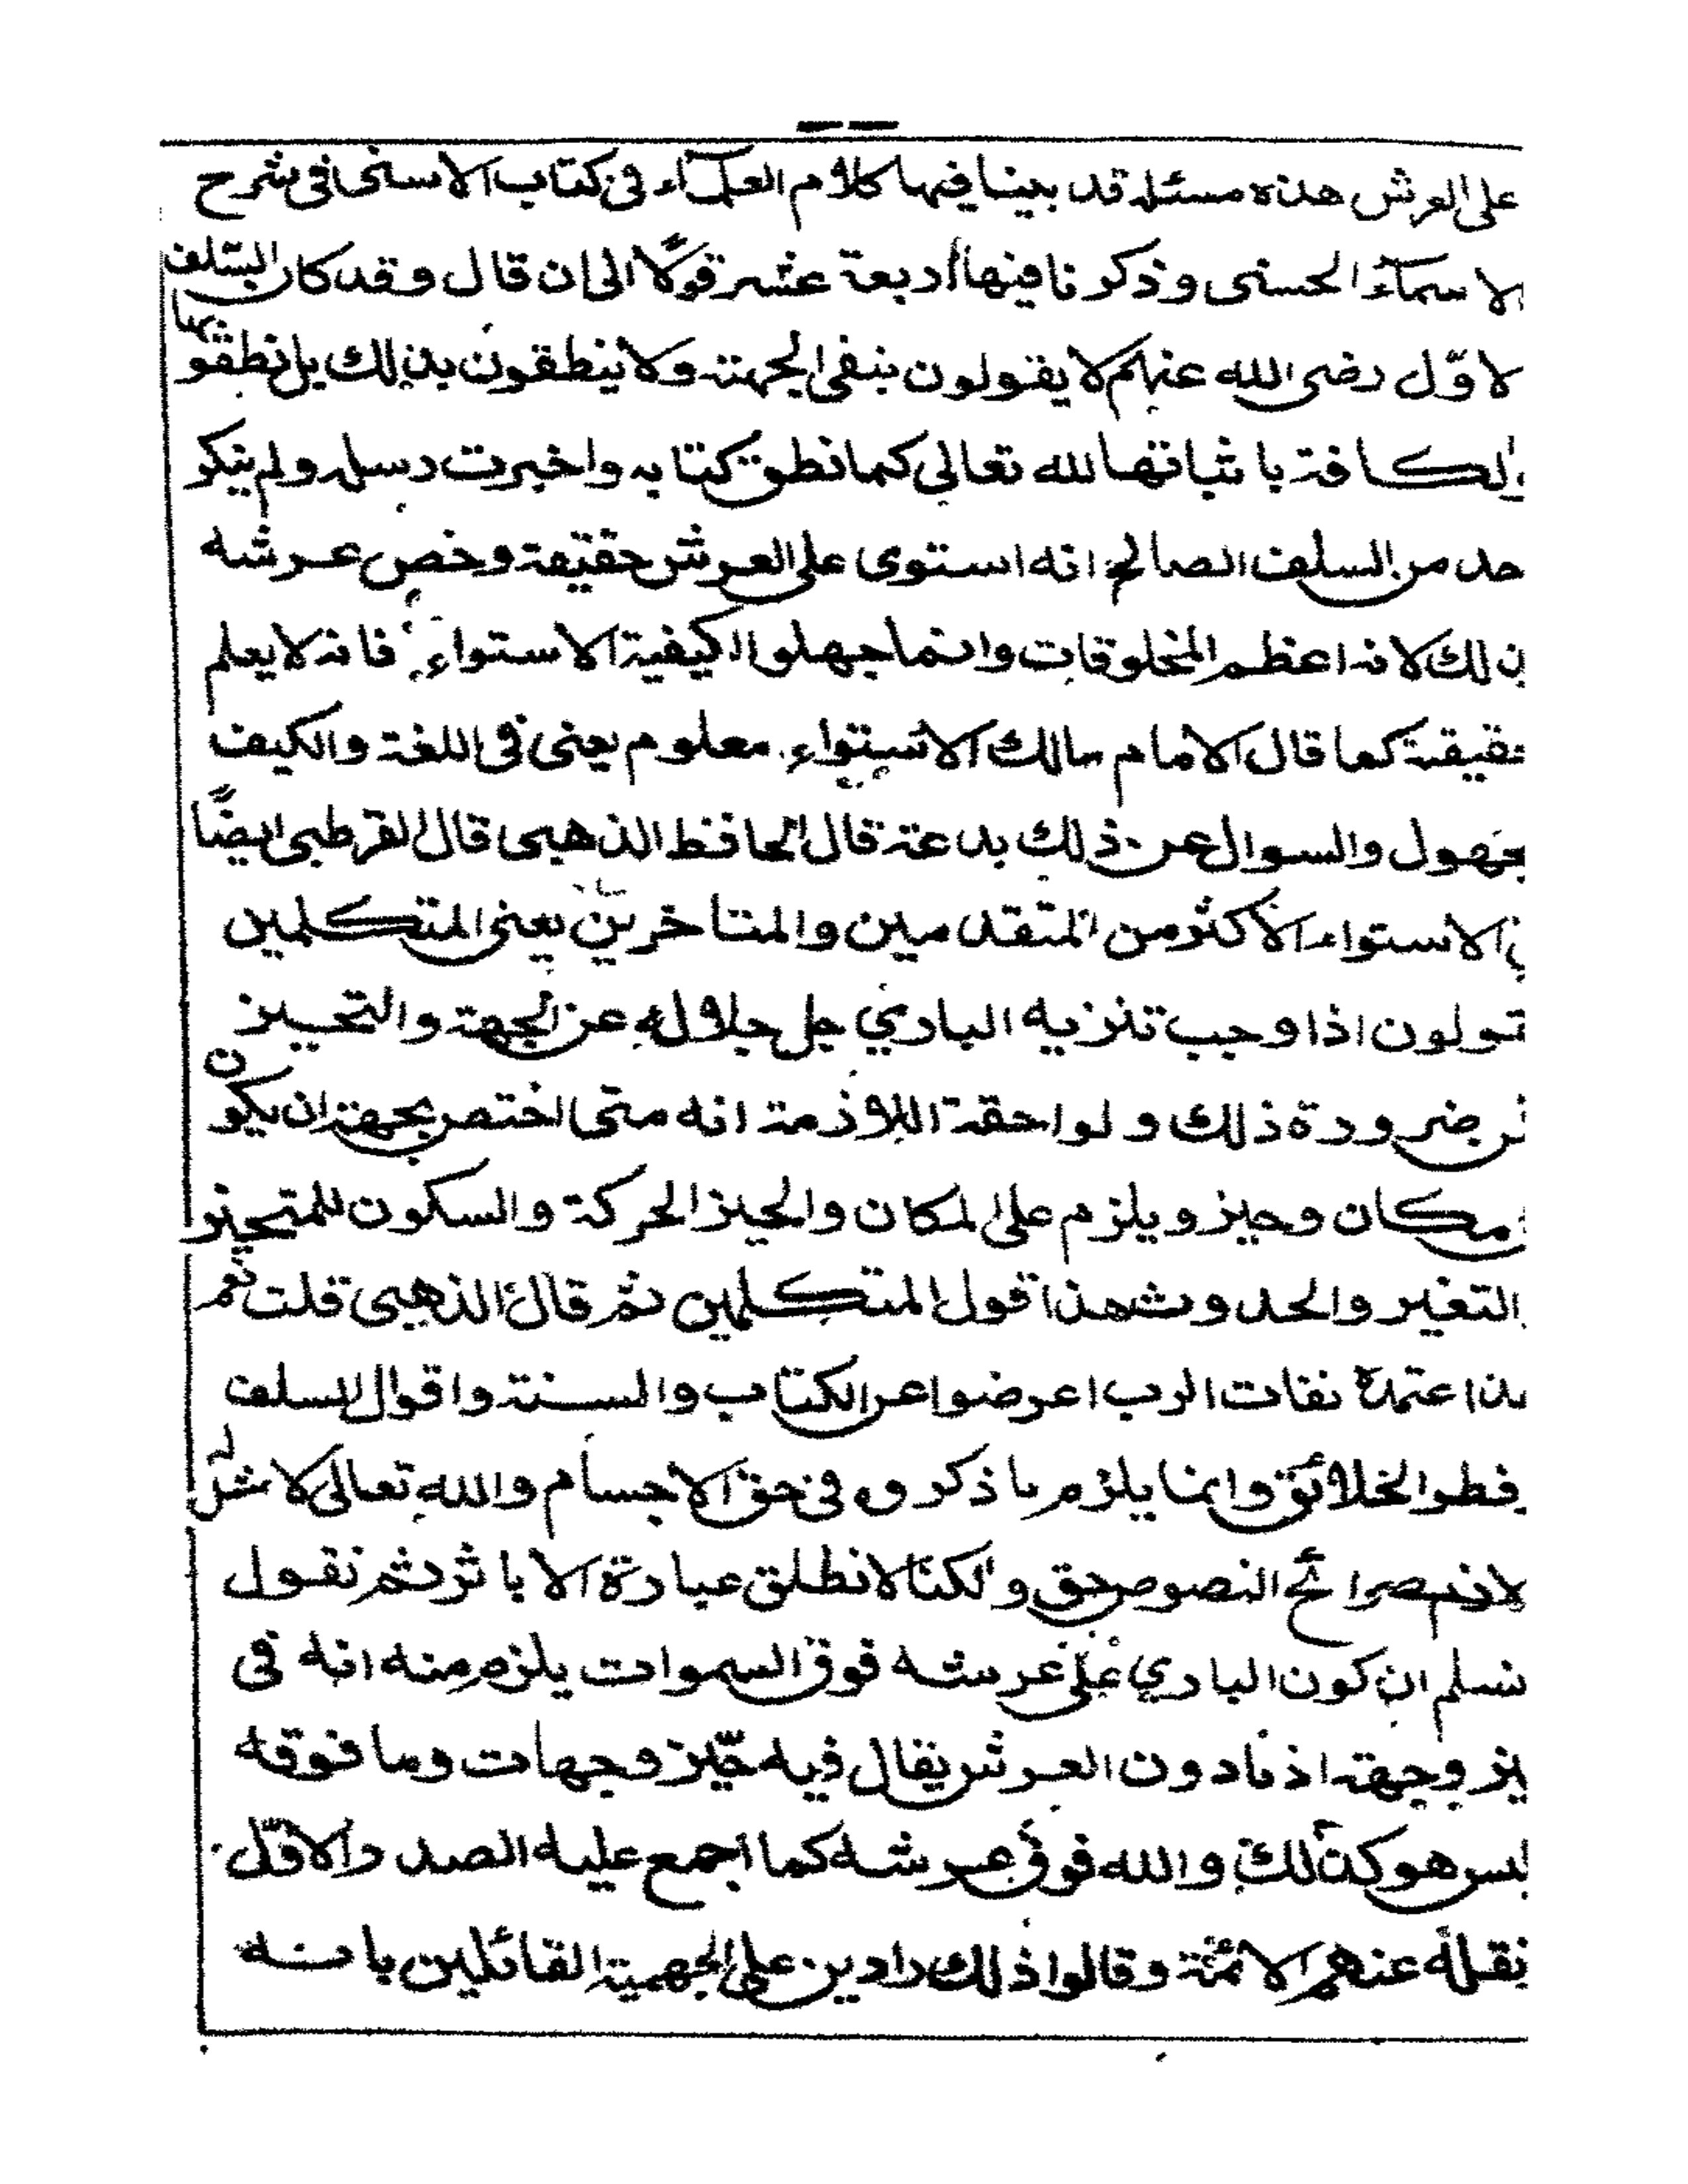 على العرش هذه مسئلة قد بينا فيها كلام العلمآء فى كتاب الاسنى فى شرح
الاسمآء الحسنى وذكرنا فيها اربعة عشر قولًا الى ان قال وقد كان السّلف
لاوّل رضى الله عنهم لا يقولون بنفى الجهة ولا ينطقون بذلك بل نطقوا
الكافة باثباتها لله تعالى كما نطق كتابه واخبرت رسله ولم ينكر
حد من السلف الصالح انه استوى على العرش حقيقة وخص عرشه
بذلك لانه اعظم المخلوقات وانما جهلوا كيفية الاستواء فانه لا يعلم
حقيقته كما قال الامام مالك الاستواء معلوم يعنى فى اللغة والكيف
جهول والسوال عن ذلك بدعة قال الحافظ الذهبى قال القرطبى ايضًا
الاستواء الاكثر من المتقدمين والمتاخرين يعنى المتكلمين
قولون اذا وجب تنزيه الباري جل جلاله عن الجهة والتحيز
ضرورة ذلك ولواحقة اللازمة انه متى اختص بجهة ان يكون
مكان وحيز ويلزم على المكان والحيز الحركة والسكون للمتحيز
التغير والحدوث هذا قول المتكلمين ثم قال الذهبى قلت نعم
اعتمده نفات الرب اعرضوا عن الكتاب والسنة واقوال السلف
فطر الخلائق وانما يلزم ما ذكروه فى حق الاجسام والله تعالى لا مثل له
لازم صرائح النصوص حق ولكنا لا نطلق عبارة الا باثر ثم نقول
نسلم ان كون الباري على عرشه فوق السموات يلزم منه انه فى
يز وجهة اذ مادون العرش يقال فيه حيّز وجهات وما فوقه
ليس هو كذلك والله فوق عرشه كما اجمع عليه الصدر الاوّل
نقله عنهم الائمة وقالوا ذلك رادين على الجهمية القائلين بانه